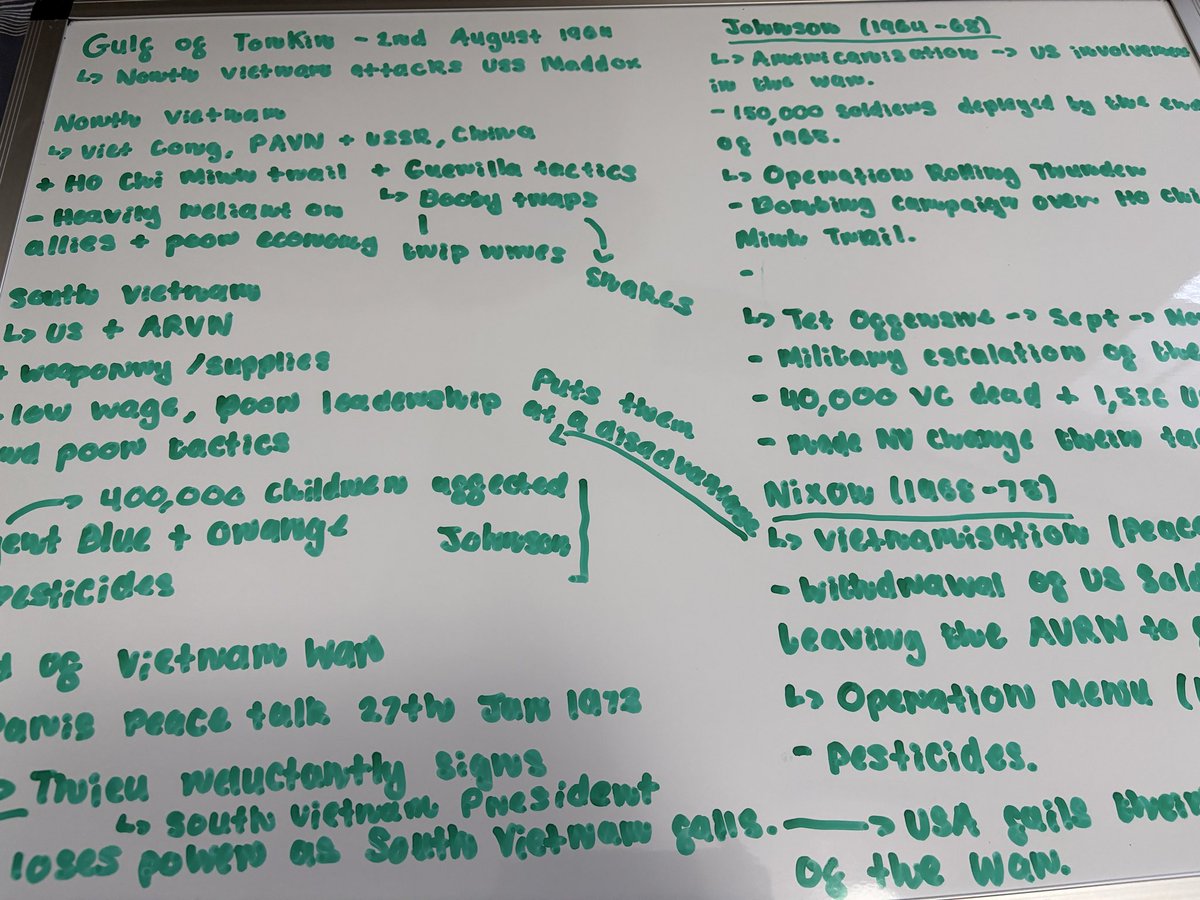 Gulf of Tonkin - 2nd August 1964
↳ North Vietnam attacks USS Maddox
North Vietnam
↳ Viet Cong, PAVN + USSR, China
+ Ho Chi Minh trail + Guerilla tactics
- Heavily reliant on ↳ Booby traps
allies + poor economy trip wires
Snakes
South Vietnam
↳ US + ARVN
+ weaponry /supplies
- low wage, poor leadership
poor tactics
→ 400,000 children affected
Blue + Orange Johnson
pesticides
of Vietnam War
Paris Peace talk 27th Jan 1973
→ Thieu reluctantly signs
↳ South Vietnam President
loses power as South Vietnam falls.
Puts them
at a disadvantage
Johnson (1964-68)
↳ Americanisation -> US
in the war.
- 150,000 soldiers deployed by the end
of 1965.
↳ Operation Rolling Thunder
- Bombing campaign over Ho Chi
Minh Trail.
-
↳ Tet Offensive -> Sept ->
- Military escalation of the
- 40,000 VC dead + 1,536
- made NV change their
Nixon (1968-73)
↳ Vietnamisation
- Withdrawal of US
leaving the AVRN to
↳ Operation Menu
- pesticides.
→ USA fails
of the war.